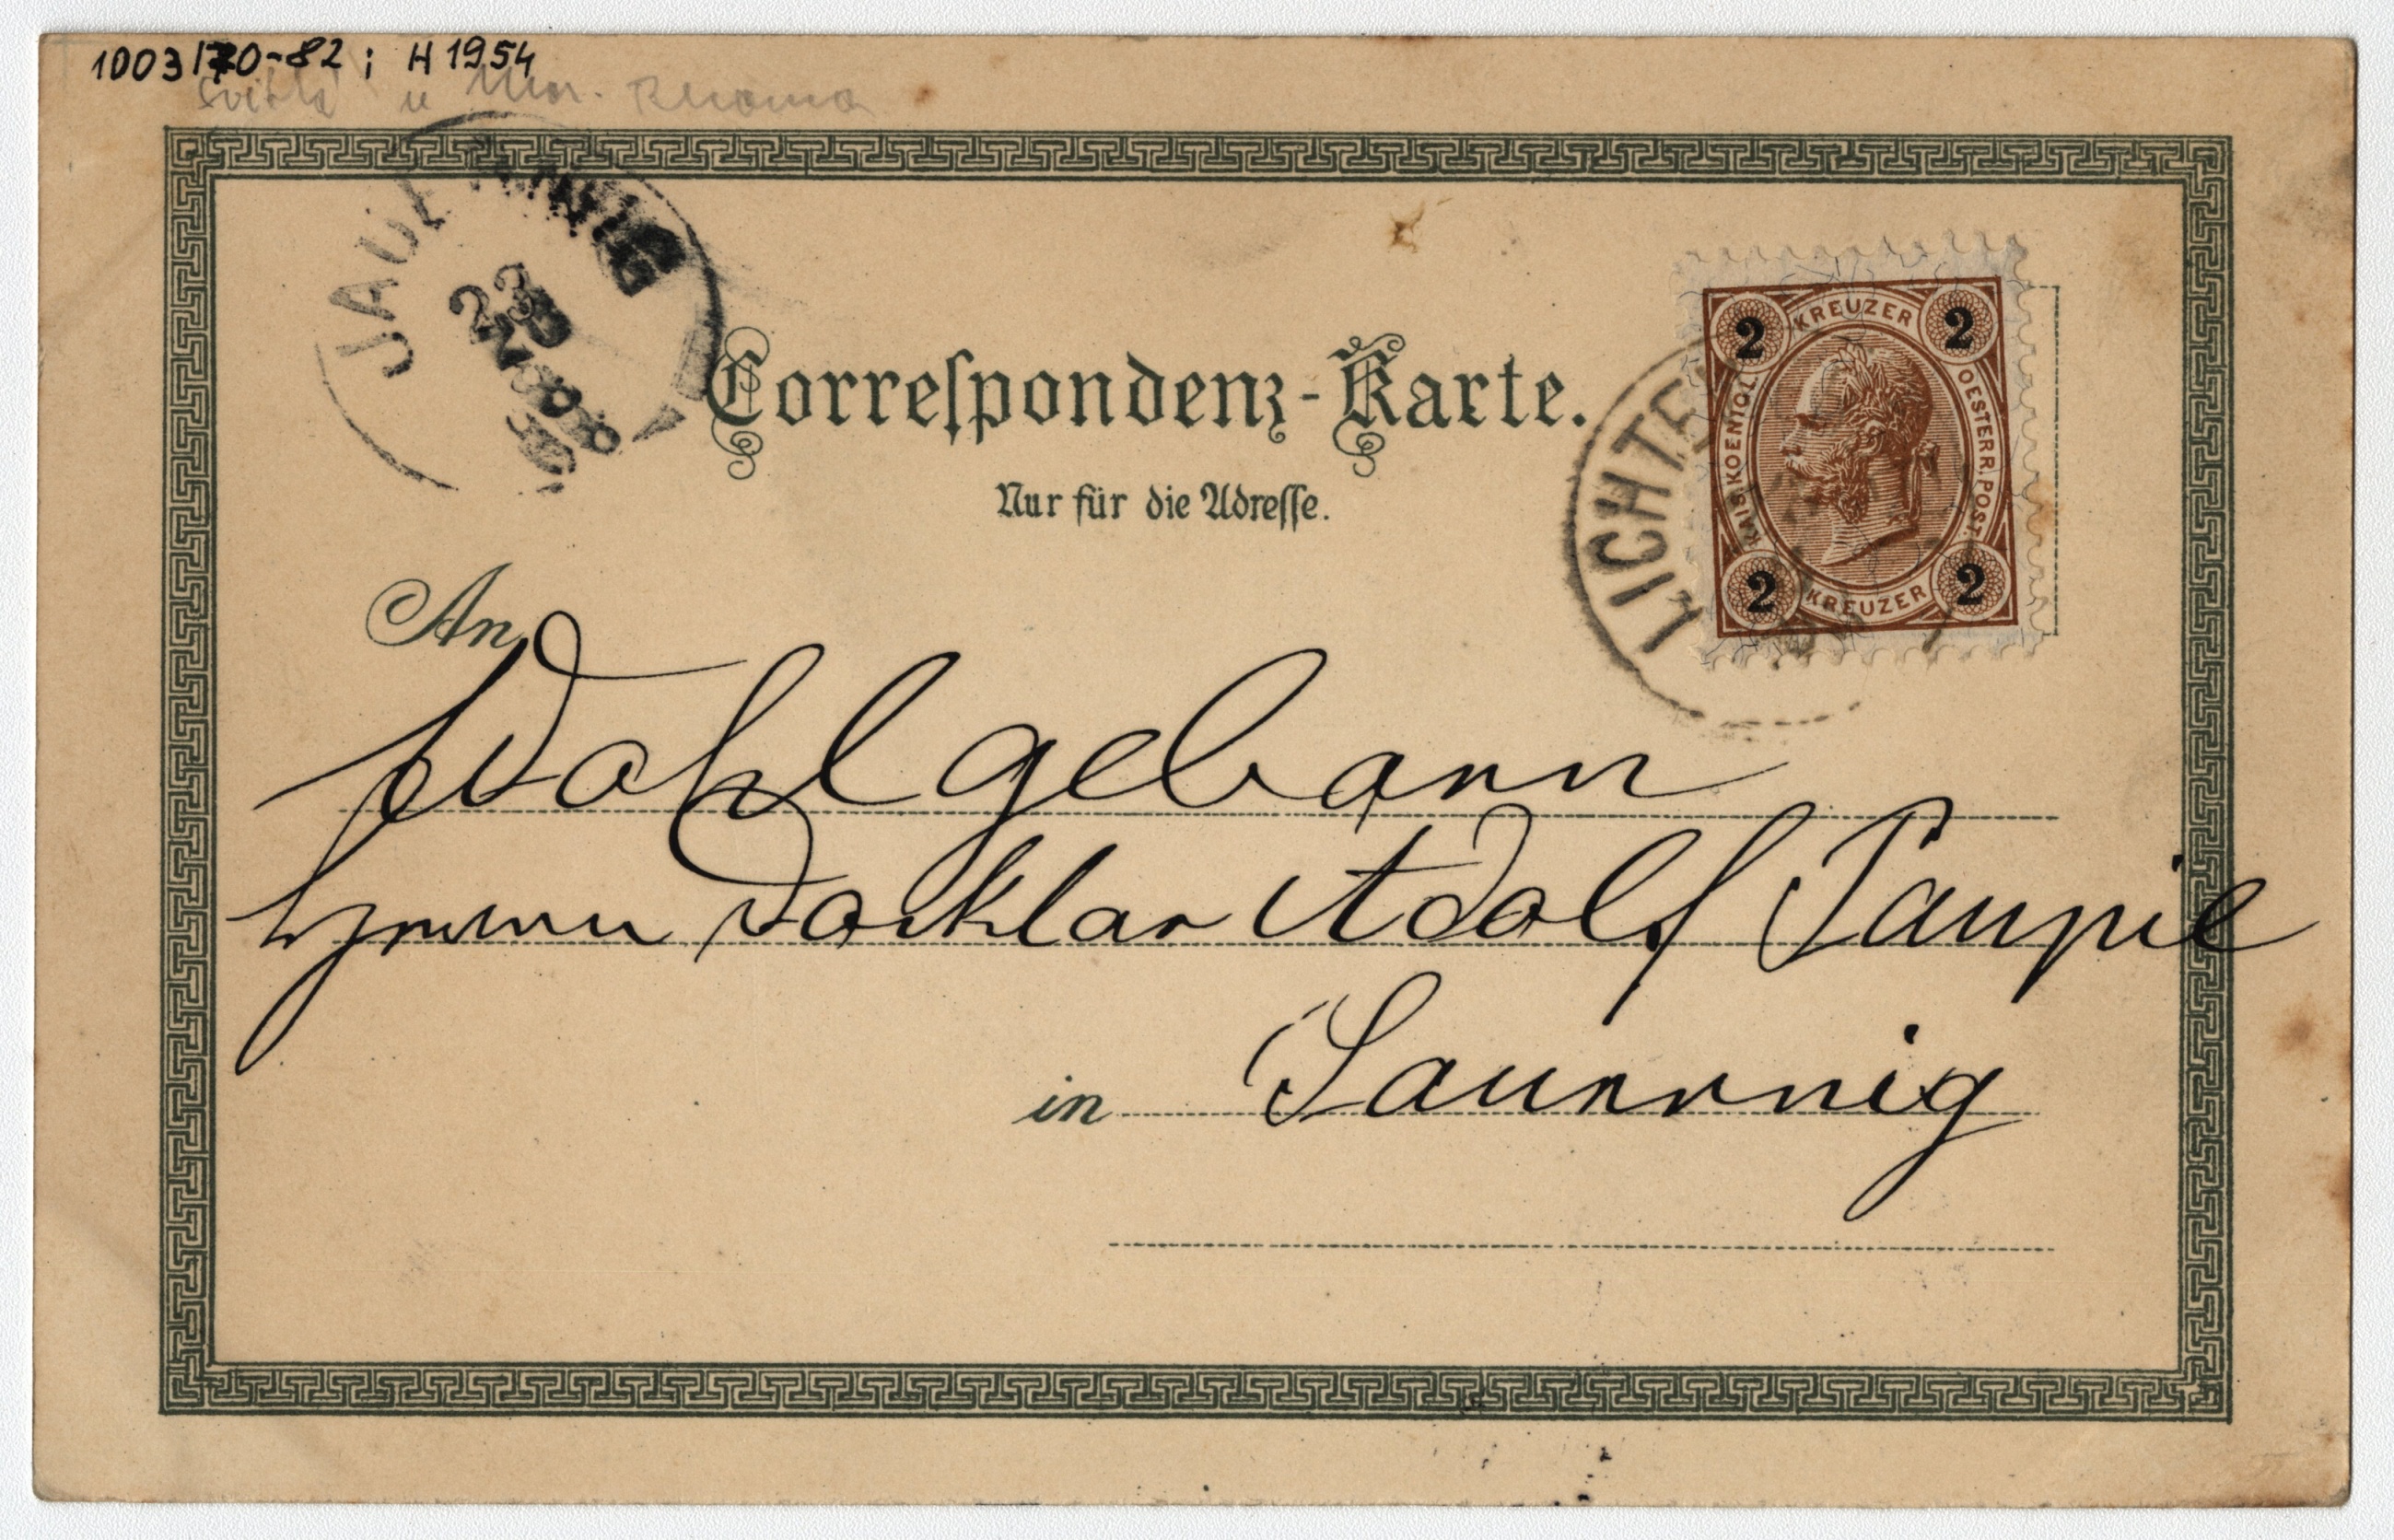 1003/70-82; H 1954
JAUERNIG
23
98
Correſpondenz-Karte.
Nur für die Adreſſe.
2 KREUZER 2
KAIS. KOENIGL. OESTERR. POST
2 KREUZER 2
LICHTE
An
Wohlgeborn
Herrn Docktor Adolf Paupie
in Jauernig